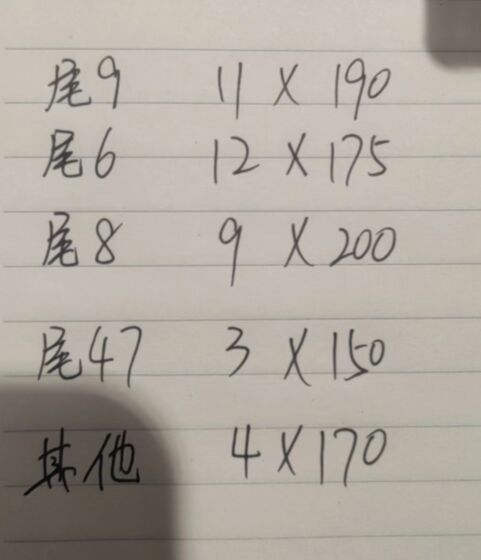 尾9 11 X 190
尾6 12 X 175
尾8 9 X 200
尾47 3 X 150
其他 4 X 170